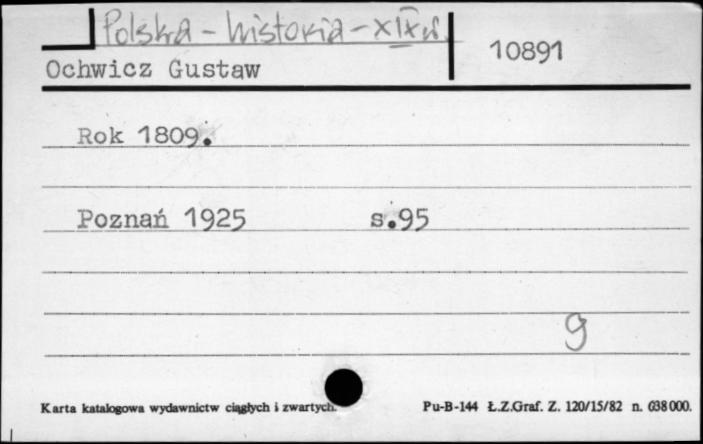 Polska - historia - XIX w.
10891
Ochwicz Gustaw
Rok 1809.
Poznań 1925 s.95
g
Karta katalogowa wydawnictw ciągłych i zwartych.
Pu-B-144 Ł.Z.Graf. Z. 120/15/82 n. 638000.